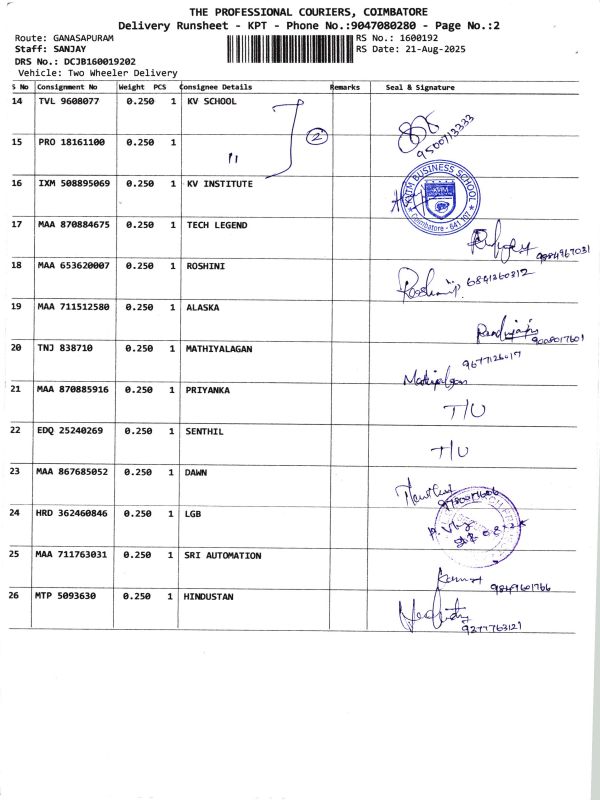 THE PROFESSIONAL COURIERS, COIMBATORE
Delivery Runsheet - KPT - Phone No.:9047080280 - Page No.:2
Route: GANASAPURAM
RS No.: 1600192
Staff: SANJAY
RS Date: 21-Aug-2025
DRS No.: DCJB160019202
Vehicle: Two Wheeler Delivery
S No Consignment No Weight PCS Consignee Details Remarks Seal & Signature
14 TVL 9608077 0.250 1 KV SCHOOL
2
9500713333
15 PRO 18161100 0.250 1
11
16 IXM 508895069 0.250 1 KV INSTITUTE
KVIM BUSINESS SCHOOL
KVIM
Coimbatore - 641 107
17 MAA 870884675 0.250 1 TECH LEGEND
9884967031
18 MAA 653620007 0.250 1 ROSHINI
Roshini 6841360312
19 MAA 711512580 0.250 1 ALASKA
9008017601
20 TNJ 838710 0.250 1 MATHIYALAGAN
9677126017
Mathiyalagan
21 MAA 870885916 0.250 1 PRIYANKA
T/U
22 EDQ 25240269 0.250 1 SENTHIL
T/U
23 MAA 867685052 0.250 1 DAWN
24 HRD 362460846 0.250 1 LGB
25 MAA 711763031 0.250 1 SRI AUTOMATION
Kumar
9849601766
26 MTP 5093630 0.250 1 HINDUSTAN
9277763121